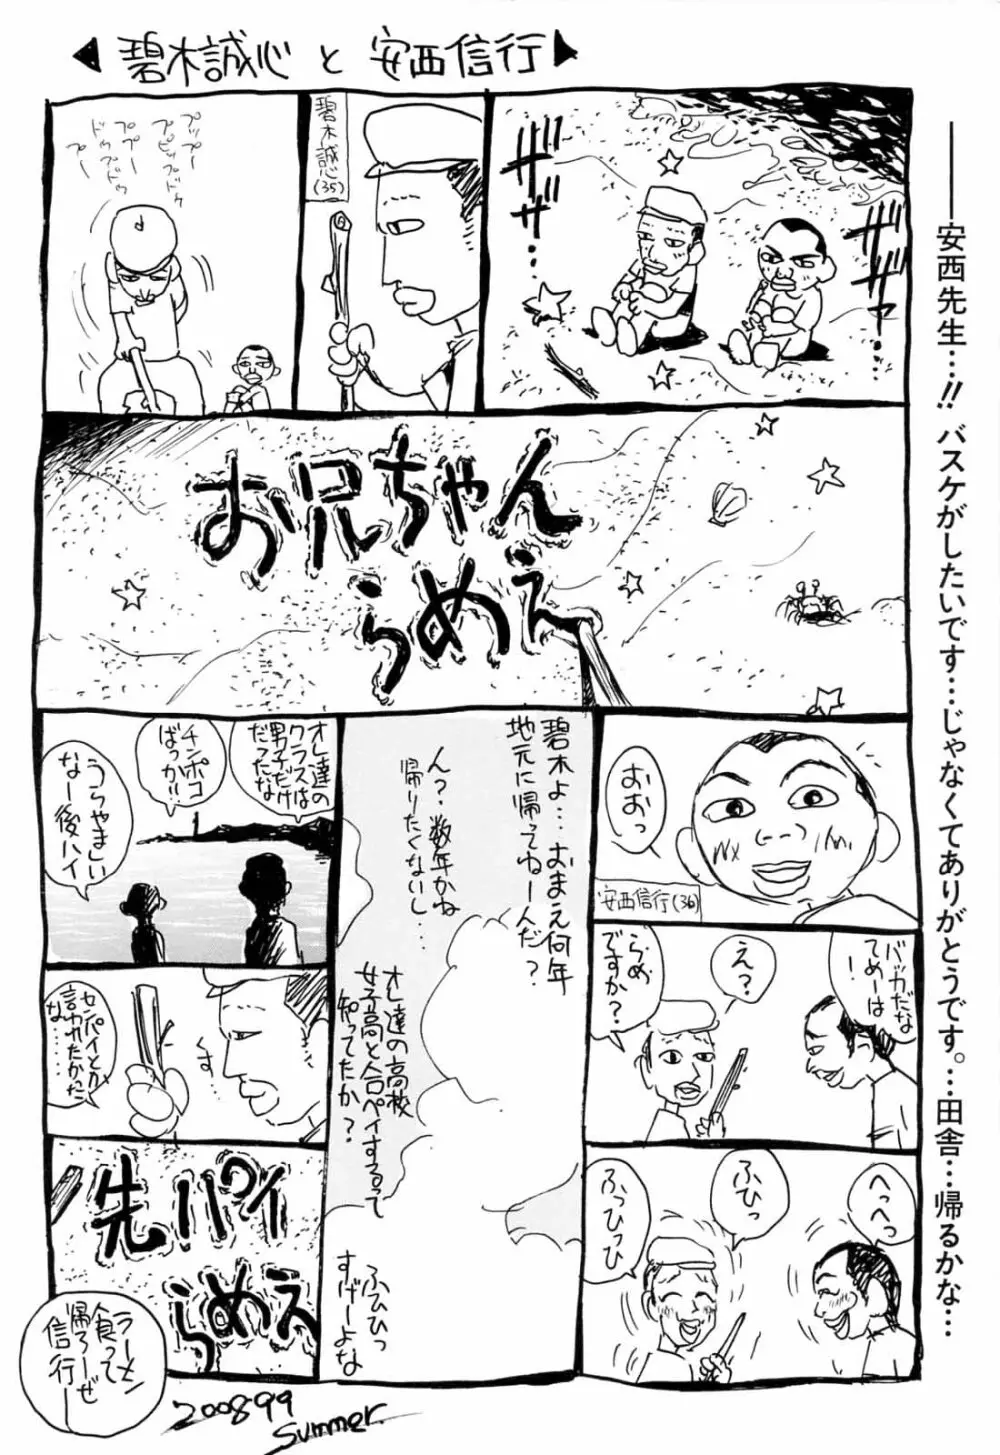 碧木誠心と安西信行
ザザザ…
ザザザァ…
碧木誠心(35)
プップー
プピップドゥ
ププー
ドゥップドゥ
プー
お兄ちゃん
らめえ
おおっ
安西信行(36)
バカだな
てめーは
!
え?
らめ
ですか?
へっへっ
ふひっ
ふっひっひ
碧木よ…おまえ何年
地元に帰ってねー人だ?
ん?数年かね
帰りたくないし…
オレ達の高校
女子高と合ペイするって
知ってたか?
ふひひっ
すげーよな
オレ達の
クラスは
男子だけ
だったな
チンポコ
ばっか!!
うらやましい
なー後ハイ
す…
センパイとか
言われたかった
な……
先パイ
らめえ
ラーメン
食って
帰ろーぜ
信行ー
2008.99
Summer.
――安西先生…!!バスケがしたいです…じゃなくてありがとうです。…田舎…帰るかな…